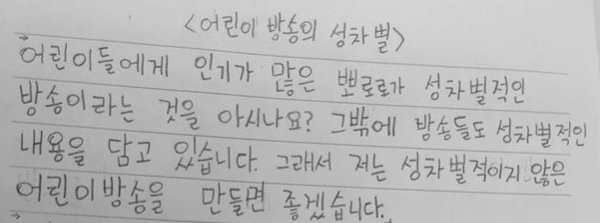 <어린이 방송의 성차별>
어린이들에게 인기가 많은 뽀로로가 성차별적인
방송이라는 것을 아시나요? 그밖에 방송들도 성차별적인
내용을 담고 있습니다. 그래서 저는 성차별적이지 않은
어린이방송을 만들면 좋겠습니다.